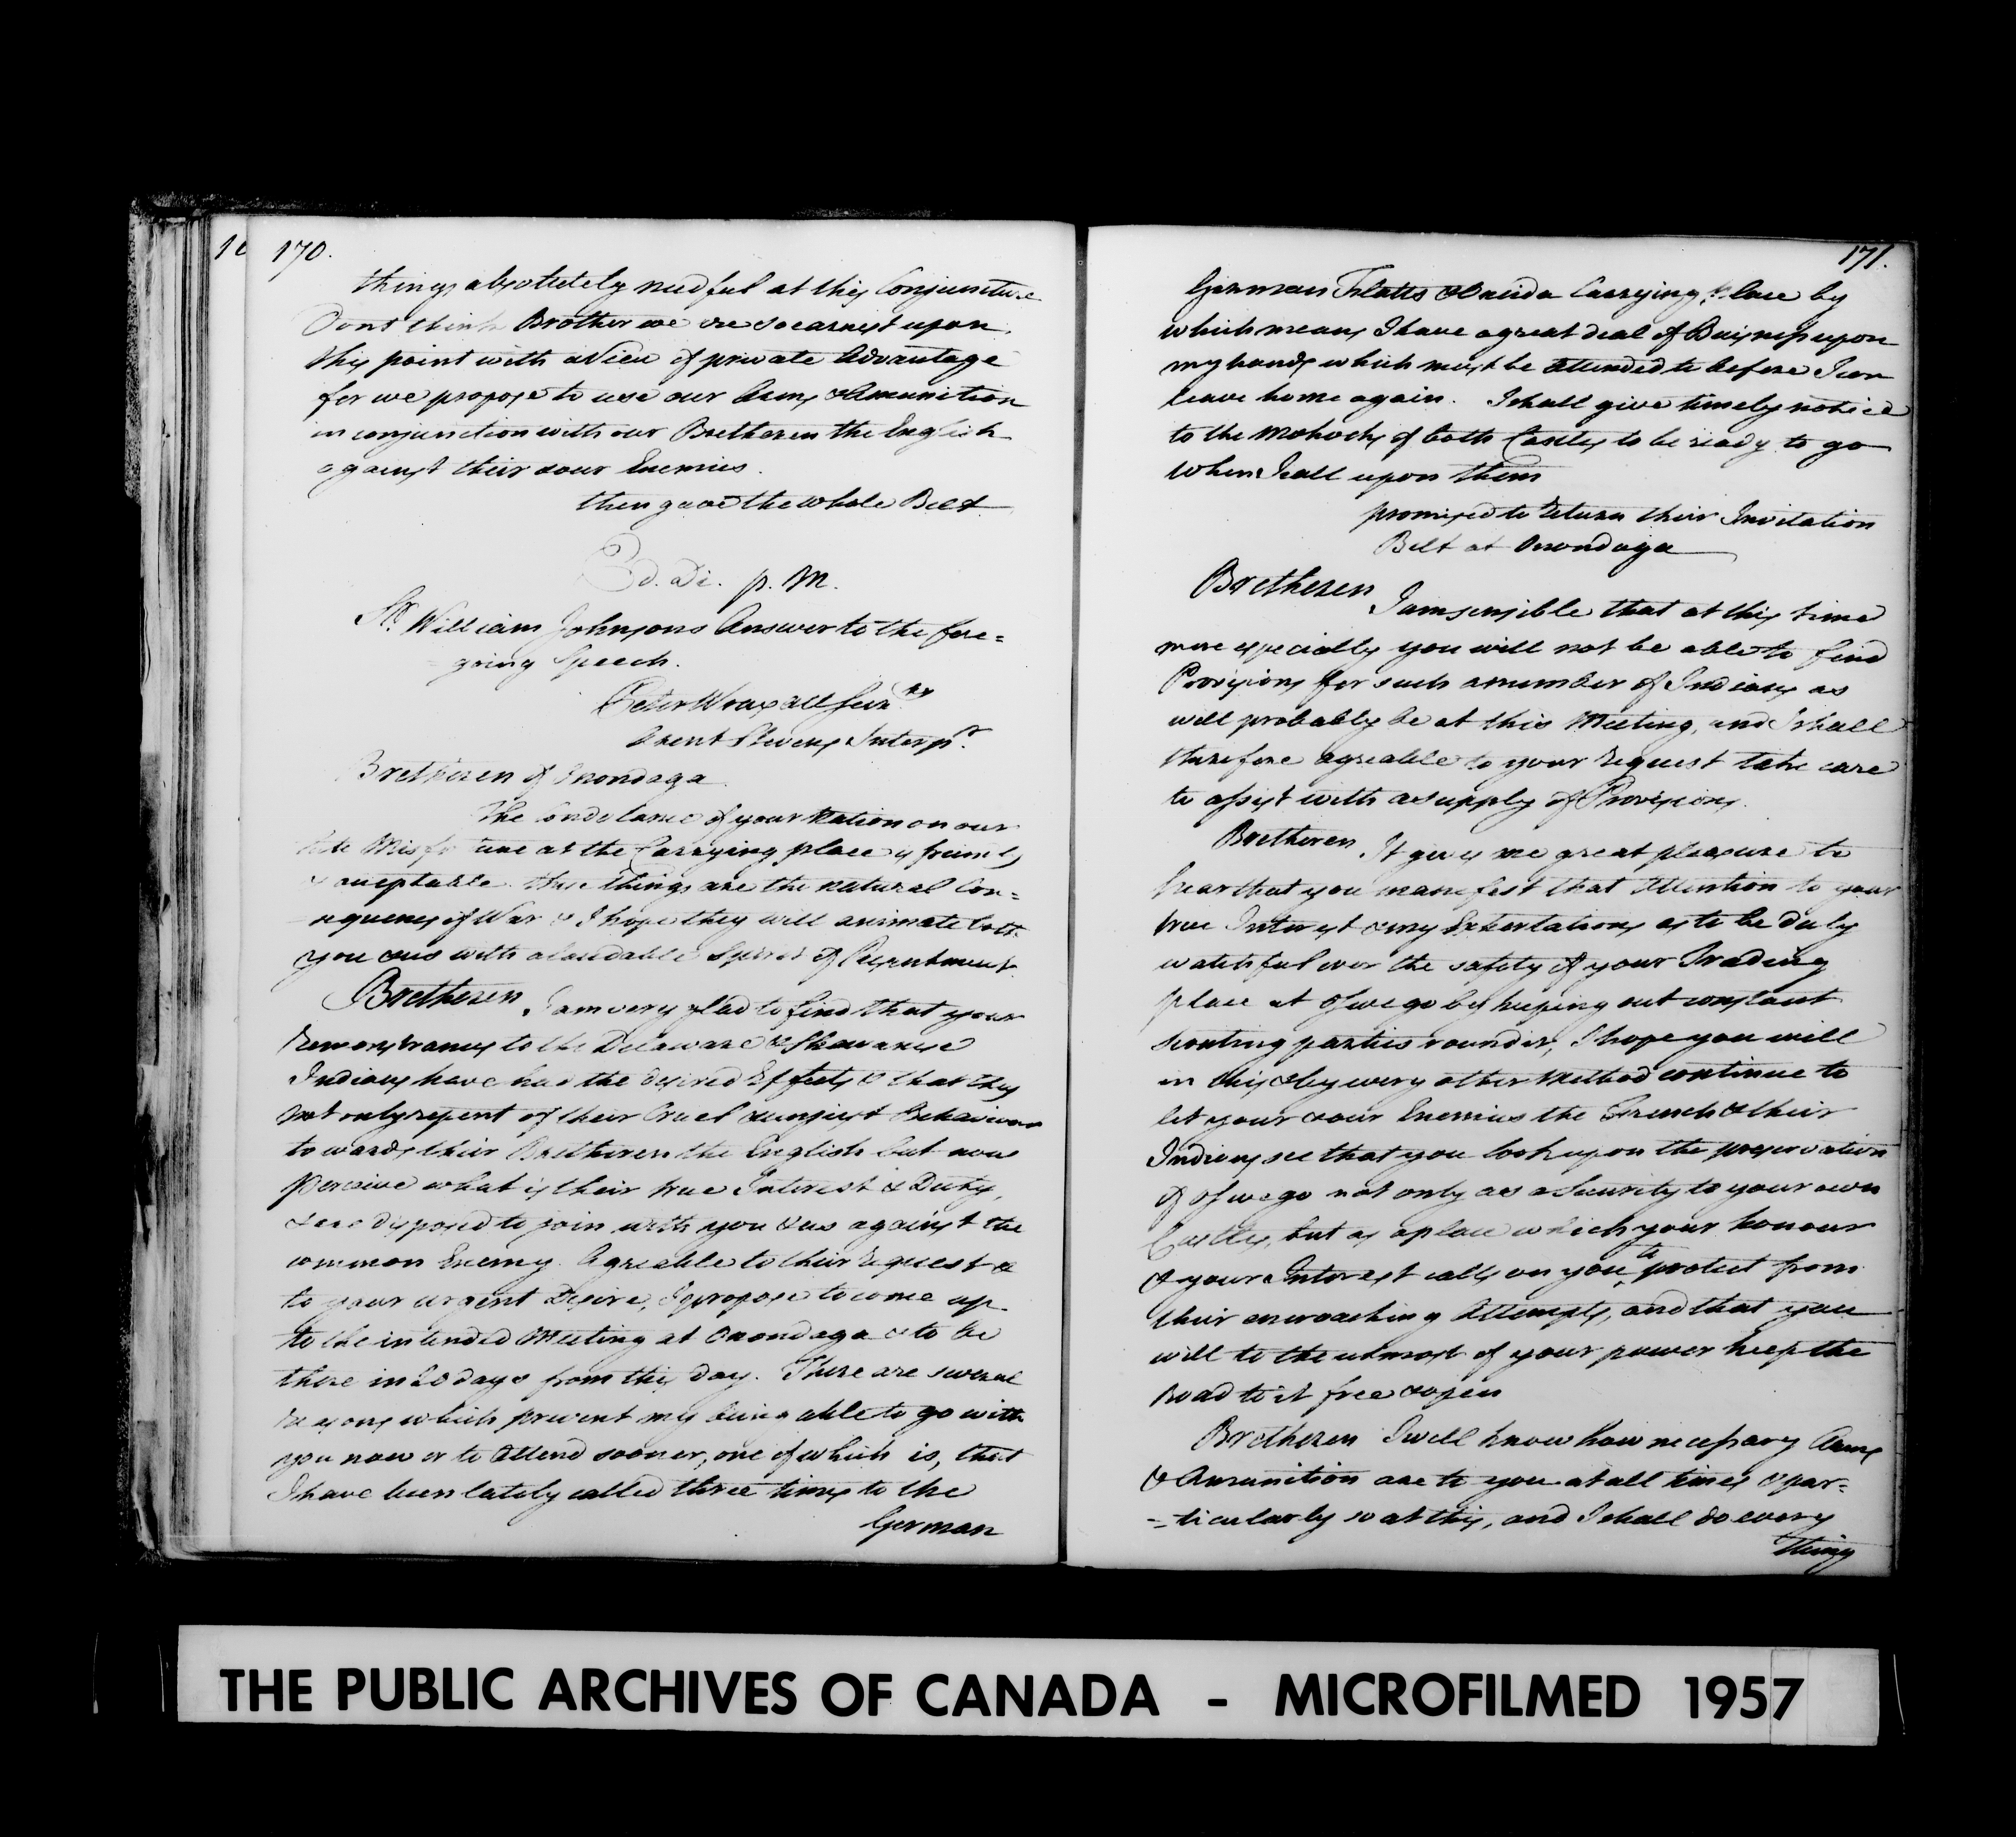 170.
things absolutely needful at this Conjuncture
Dont think Brother we are so earnest upon
this point with a View of private Advantage
for we propose to use our Arms & Amunition
in conjunction with our Bretheren the English
against their & our Enemies.
then gave the whole Belt
3d. Di. p. M.
Sr. William Johnsons Answer to the fore=
going Speech.
Peter Wraxall Secr.ty
Arent Stevens Interpr.
Bretheren of Onondaga
The Condolance of your Nation on our
late Misfortune at the Carrying place is friendly
& acceptable. these things are the natural Con=
sequences of War & I hope they will animate both
you & us with a laudable Spirit of Resentment
Bretheren, I am very glad to find that your
Remonstrances to the Delaware & Shawanese
Indians have had the desired Effects & that they
not only repent of their Cruel & unjust Behaviour
towards their Bretheren the English but now
perceive what is their true Interest & Duty,
& are disposed to join with you & us against the
common Enemy. Agreable to their Request &
to your urgent Desire, I propose to come up
to the intended Meeting at Onondaga & to be
there in 20 days from this Day. There are several
Reasons which prevent my being able to go with
you now or to attend sooner, one of which is, that
I have been lately called three times to the
German
171.
German Flatts & Oneida Carrying place by
which means I have a great deal of Business upon
my hands which must be attended to before I can
leave home again. I shall give timely notice
to the Mohocks of both Castles to be ready to go
when I call upon them
promised to return their Invitation
Belt at Onondaga
Bretheren
I am sensible that at this time
more especially you will not be able to find
Provisions for such a number of Indians as
will probably be at this Meeting, and I shall
therefore agreable to your Request take care
to assist with a supply of Provisions.
Bretheren, It gives me great pleasure to
hear that you manifest that Attention to your
true Interest & my Exhortations as to be duly
watchful over the safety of your Trading
place at Oswego by keeping out constant
scouting parties round it, I hope you will
in this & by every other Method continue to
let your & our Enemies the French & their
Indians see that you look upon the preservation
of Oswego not only as a Security to your own
Castles, but as a place which your honour
& your Interest calls on you to protect from
their encroaching Attempts, and that you
will to the utmost of your power keep the
Road to it free & open
Bretheren I well know how necessary Arms
& Amunition are to you at all times & par=
=ticularly so at this, and I shall do every
thing
THE PUBLIC ARCHIVES OF CANADA - MICROFILMED 1957